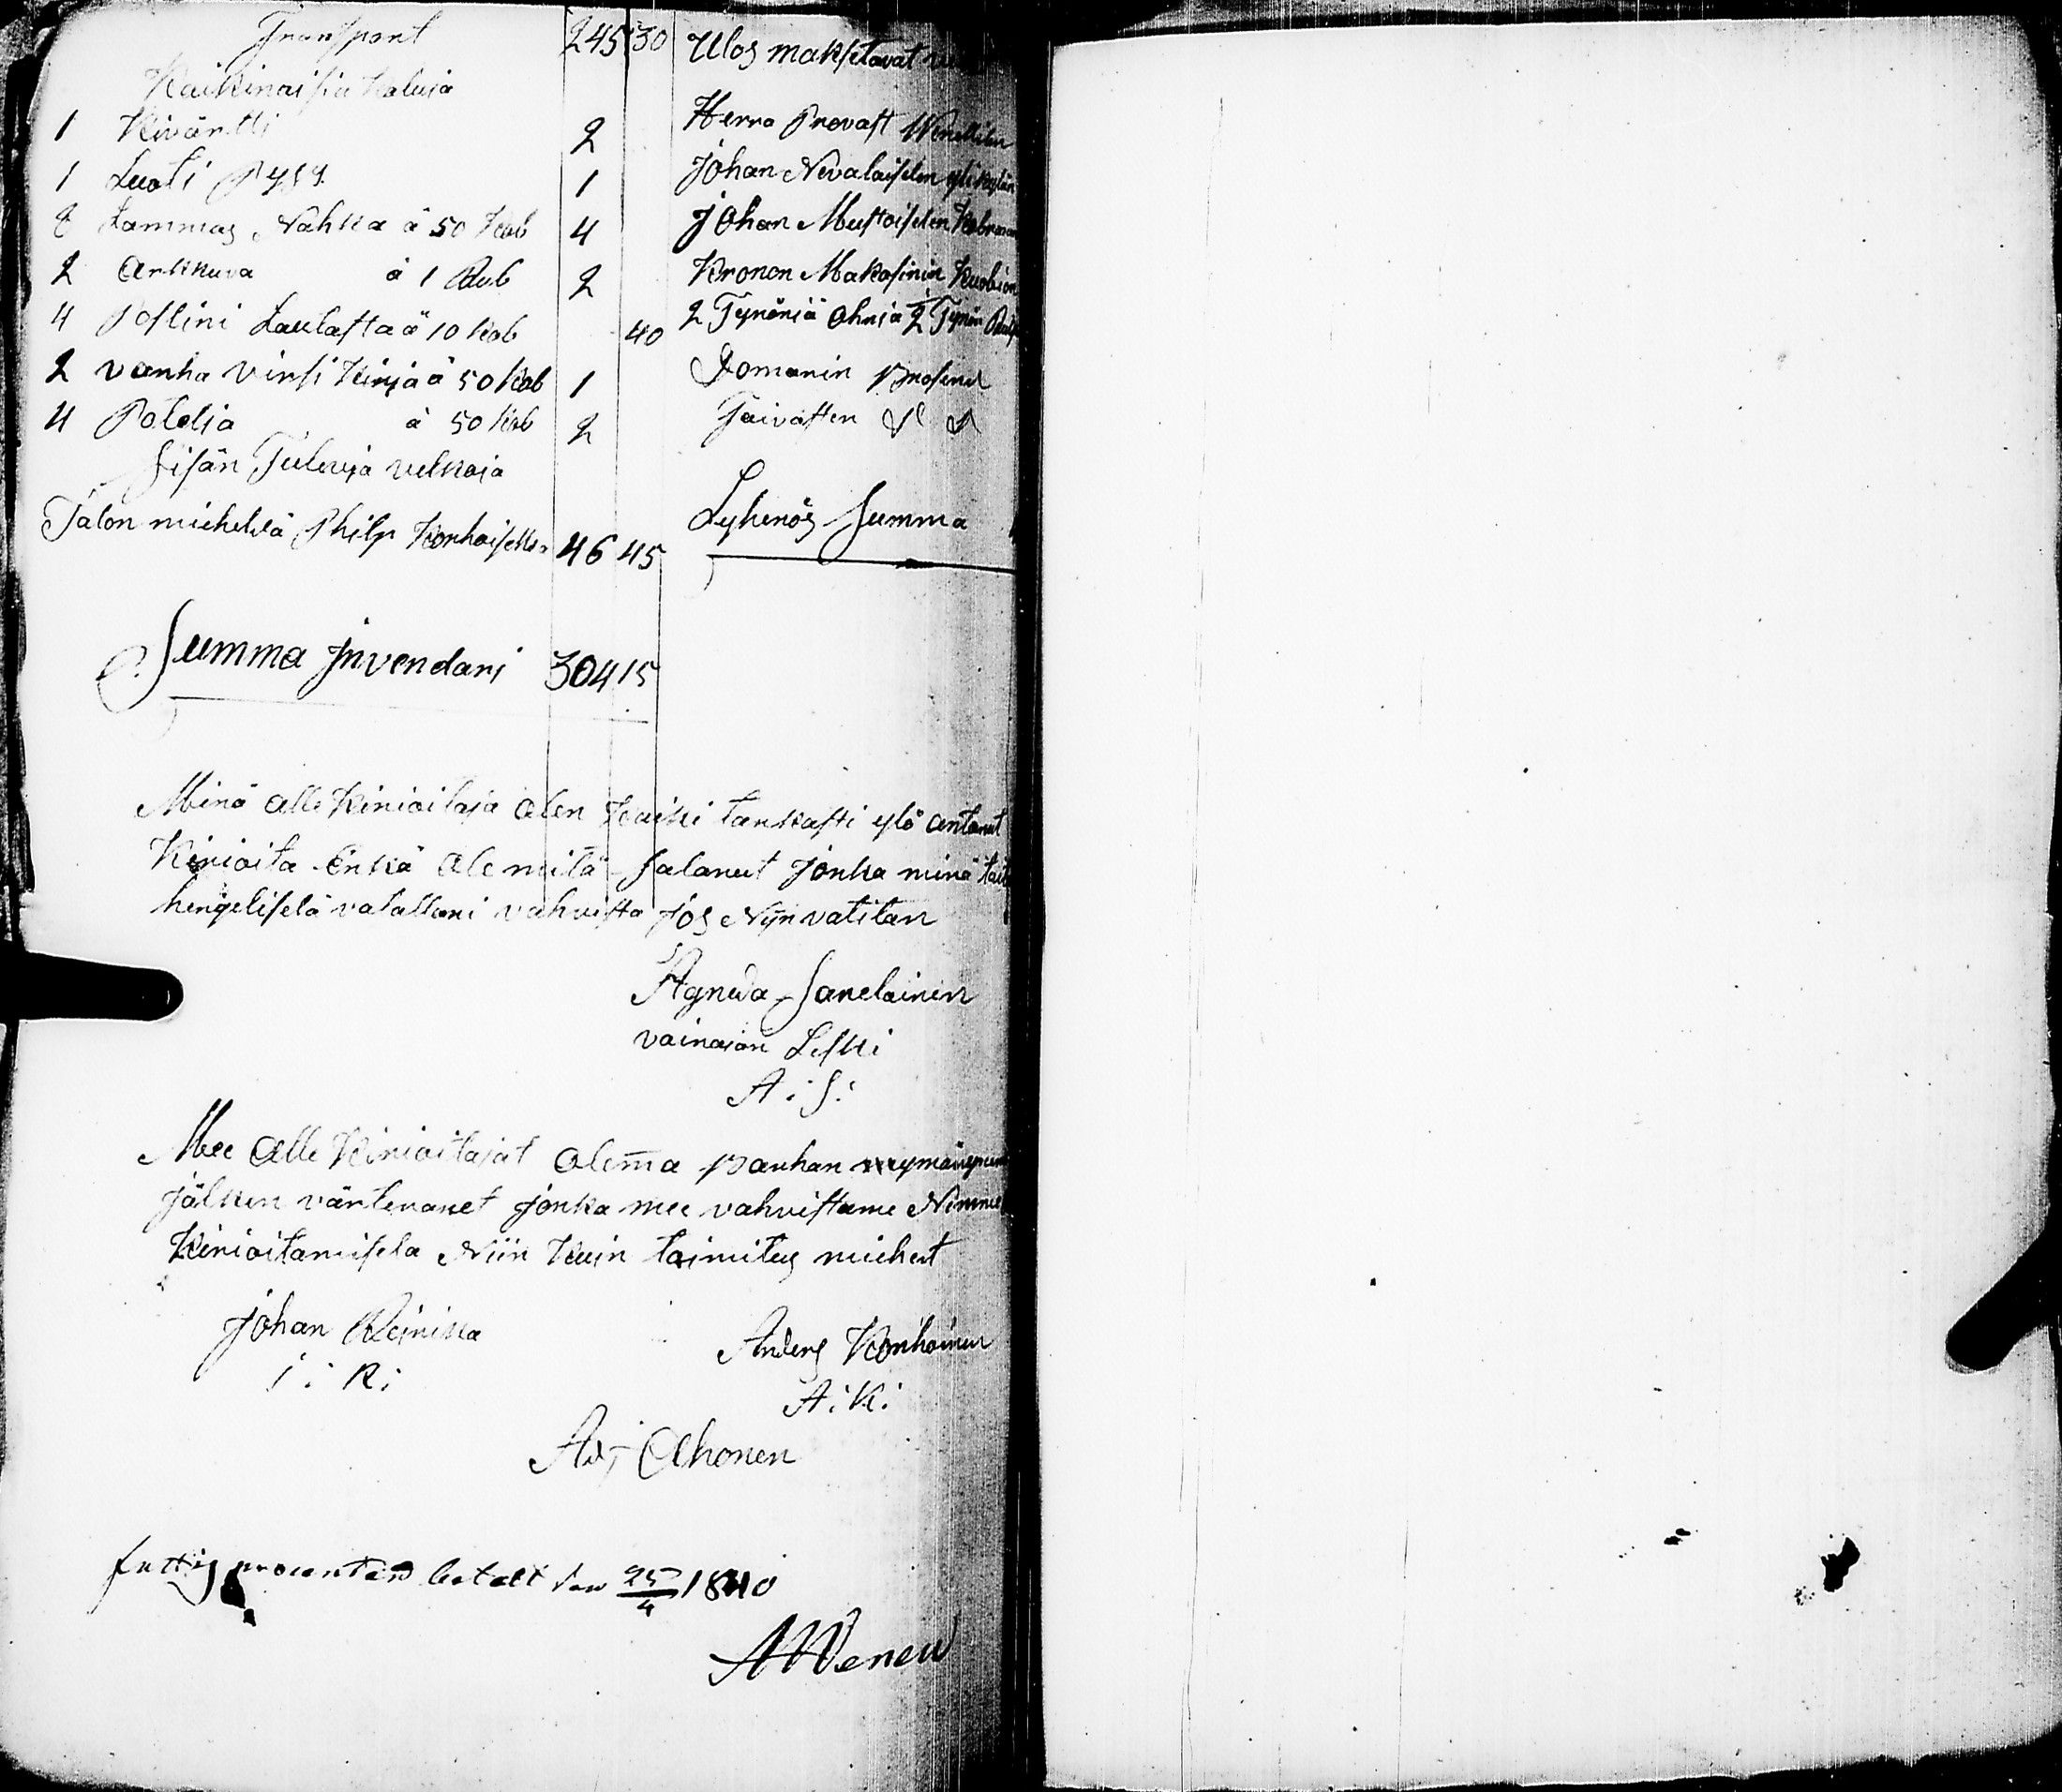 Transport 245 30
Kaikinaisia Kaluja
1 Kivärtti 2
1 Luoti Pysy 1
8 Lammas Nahka à 50 Kob 4
2 Arkkuva à 1 Rub 2
4 Poslini Laulasta à 10 Kob 40
2 vanha Virsi Kirja à 50 Kob 1
4 Potelia à 50 Kob 2
Sisän Tulevia velkoja
Talon mieheldä Philp Korhoiselda 46 45
Summa Jnvendari 304 15
Ulos maksetavat
Herra Provast
Johan Nevalaiselen ylikylän
Johan Mustoiselen
Kronon Makasinin Kuobion
2 Tynöriä Ohria 2 Tynöri
Domarin prosend
Faivasten
Lyhenös Summa
Minä alle Kirioitaja olen Kaiki tarkasti ylö antanut
Kirioita Enkä ole mitä salanut Jonka minä
hengelisela valallani vahvista Jos Nijn vatitan
Agneda Sanelainen
vainaian Leski
A: S:
Mee alle Kirioitajat olema parhan
Jälken värteranet Jonka mee vahvistame
Kirioitamisela Niin Kuin toimitus miehet
Johan Reinikka
J: R:
Anders Korhoinen
A: K:
Ad; Ahonen
fattig procenten betalt den 25/4 1840